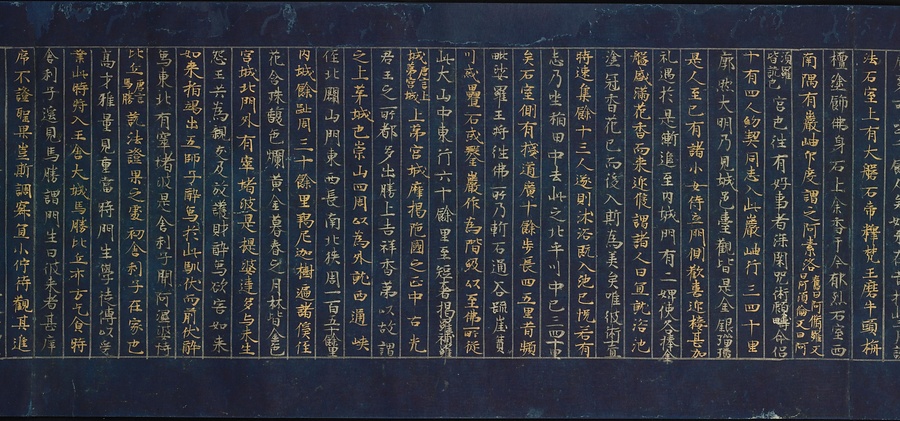 法石室上有大磨石帝釋梵王磨牛頭栴
檀塗飾佛身石上余香于今郁烈石室西
南隅有巖岫印度謂之阿素洛舊曰阿脩羅又曰阿須倫又曰阿
須羅皆訛也宮也往有好事者深閑呪術顧疇命侶
十有四人約契同志入此巖岫行三四十里
廓然大明乃見城邑臺觀皆是金銀瑠璃
是人至已有諸小女佇立門側歡喜迎接甚加
礼遇於是漸進至內城門有二婢使各捧金
槃盛滿花香而來迎候謂諸人曰宜就浴池
塗冠香花已而後入斯為美矣唯彼術士宜
時速進餘十三人遂則沐浴既入池已怳若有
忘乃坐稻田中去此之北平川中已三四十里
矣石室側有棧道廣十餘步長四五里昔頻
毗娑羅王將往佛所乃斬石通谷疏崖導
川或壘石或鑿巖作為階級以至佛所從
此大山中東行六十餘里至矩奢揭羅補羅
城唐言上茅宮城上茅宮城摩揭陀國之正中古先
君王之所都多出勝上吉祥香茅以故謂
之上茅城也崇山四周以為外郭西通峽
徑北闢山門東西長南北狹周一百五十餘里
內城餘趾周三十餘里羯尼迦樹遍諸蹊徑
花含殊馥色爛黃金暮春之月林皆金色
宮城北門外有窣堵波是提婆達多与未生
怨王共為親友乃放護財醉鳥欲害如來
如來指端出五師子醉象於此馴伏而前伏醉
象東北有窣堵波是舍利子聞阿濕婆恃
比丘唐言馬勝說法證果之處初舍利子在家也
高才雅量見重當時門生學徒傳以受
業此時將入王舍大城馬勝比丘亦方乞食時
舍利子遙見馬勝謂門生曰彼來者甚庠
序不證聖果豈斯調寂宜少佇待觀其進